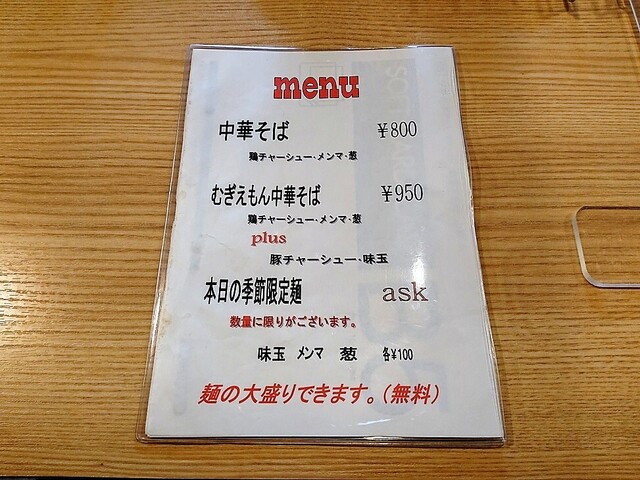 menu
中華そば ¥800
鶏チャーシュー・メンマ・葱
むぎえもん中華そば ¥950
鶏チャーシュー・メンマ・葱
plus
豚チャーシュー・味玉
本日の季節限定麺 ask
数量に限りがございます。
味玉 メンマ 葱 各¥100
麺の大盛りできます。(無料)